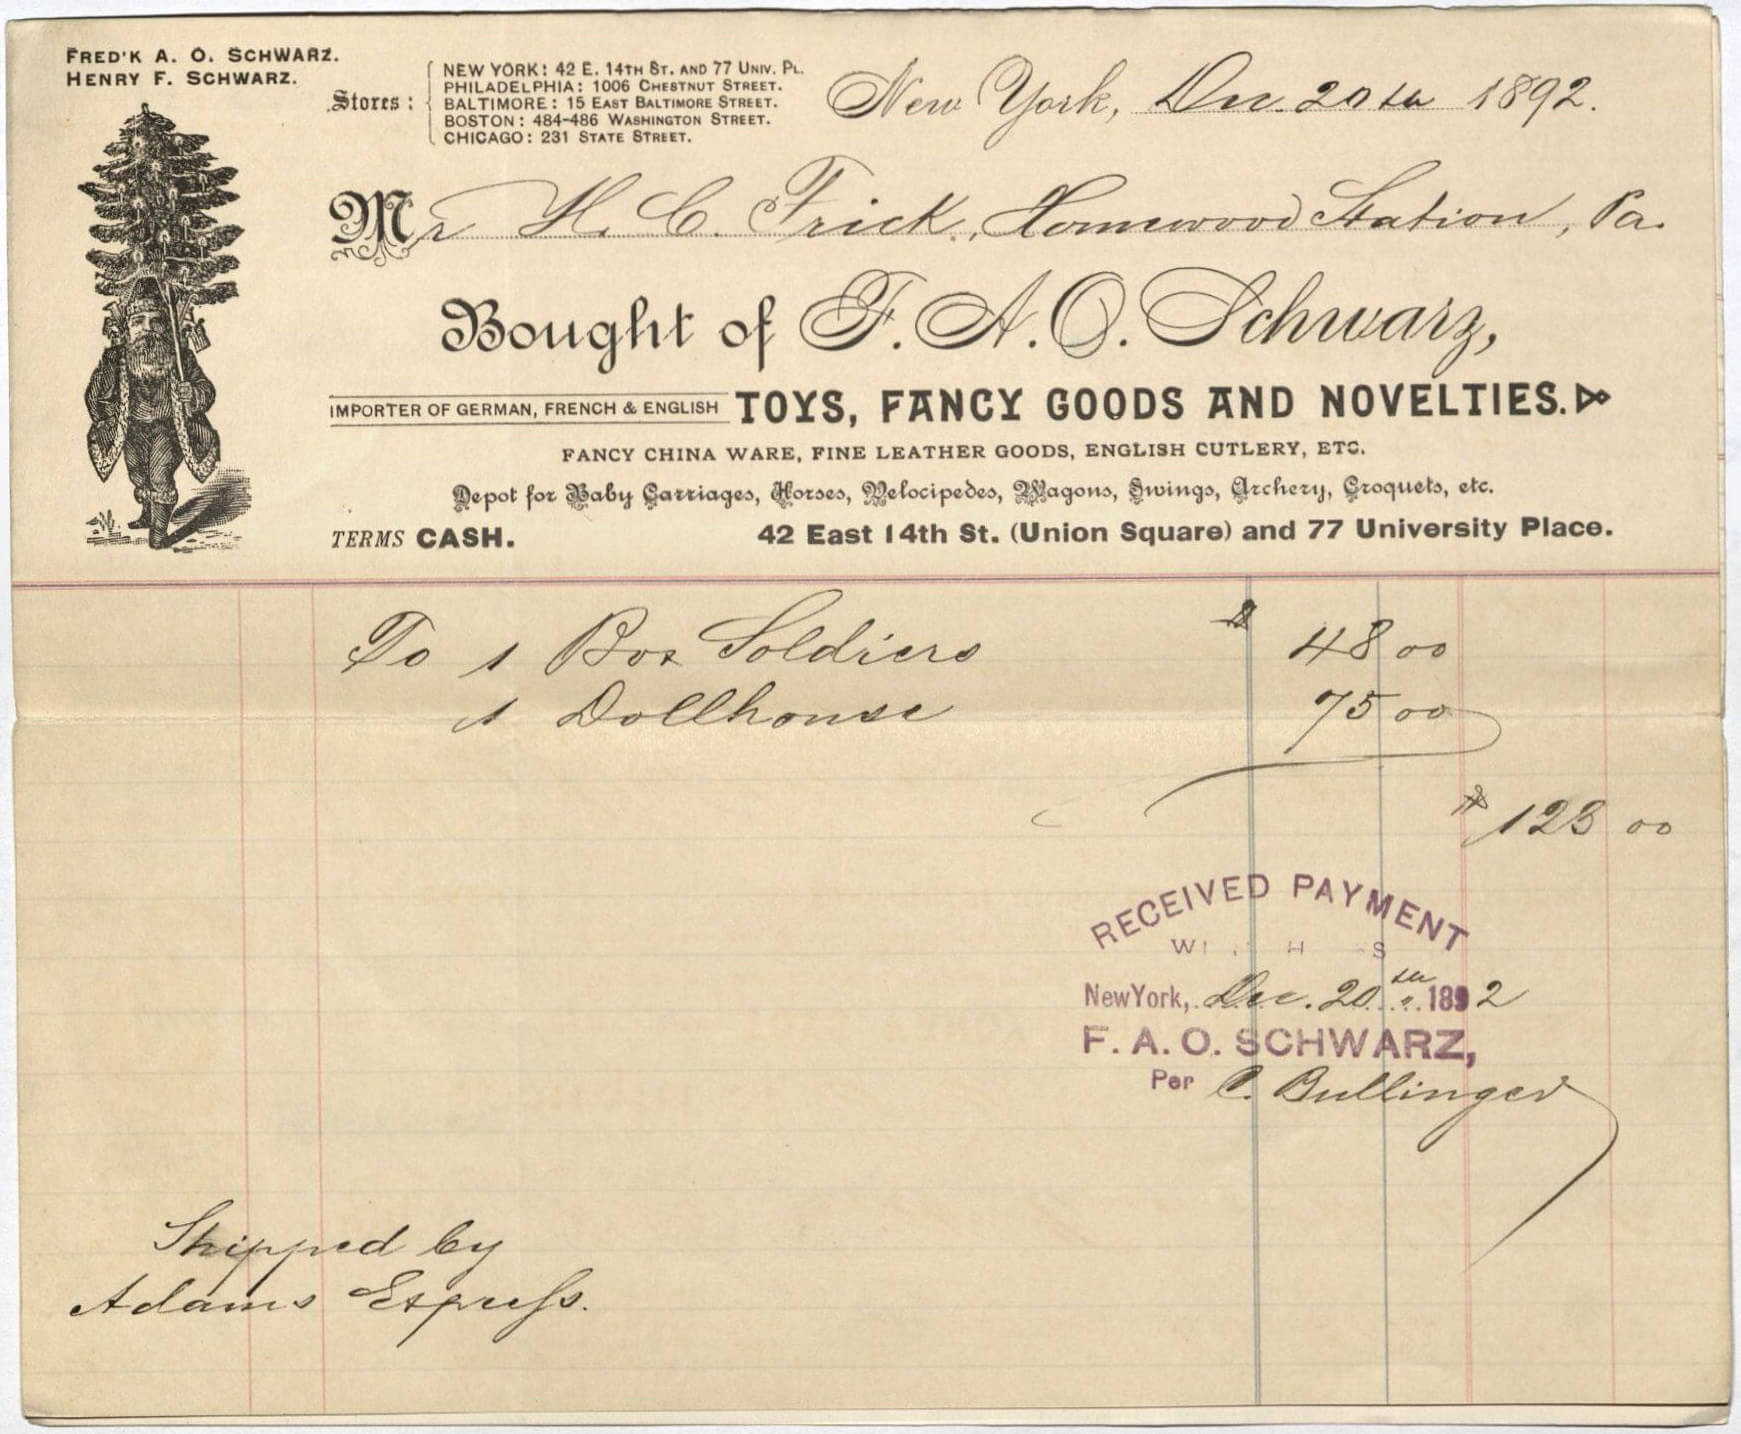 FRED'K A. O. SCHWARZ.
HENRY F. SCHWARZ.
Stores:
NEW YORK: 42 E. 14TH ST. AND 77 UNIV. PL.
PHILADELPHIA: 1006 CHESTNUT STREET.
BALTIMORE: 15 EAST BALTIMORE STREET.
BOSTON: 484-486 WASHINGTON STREET.
CHICAGO: 231 STATE STREET.
New York, Dec. 20th 1892.
Mr H. C. Frick, Homewood Station, Pa.
Bought of F. A. O. Schwarz,
IMPORTER OF GERMAN, FRENCH & ENGLISH TOYS, FANCY GOODS AND NOVELTIES.
FANCY CHINA WARE, FINE LEATHER GOODS, ENGLISH CUTLERY, ETC.
Depot for Baby Carriages, Horses, Velocipedes, Wagons, Swings, Archery, Croquets, etc.
TERMS CASH. 42 East 14th St. (Union Square) and 77 University Place.
To 1 Box Soldiers $ 48 00
1 Dollhouse 75 00
$ 123 00
RECEIVED PAYMENT
New York, Dec. 20th 1892
F. A. O. SCHWARZ,
Per C. Bullinger
Shipped by
Adams Express.